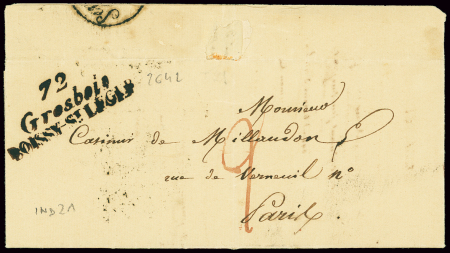 72
Grosbois
BOISSY-ST-LEGER
2642
Monsieur
Casimir de Millaudon
rue de Verneuil n°
Paris
2
IND 21